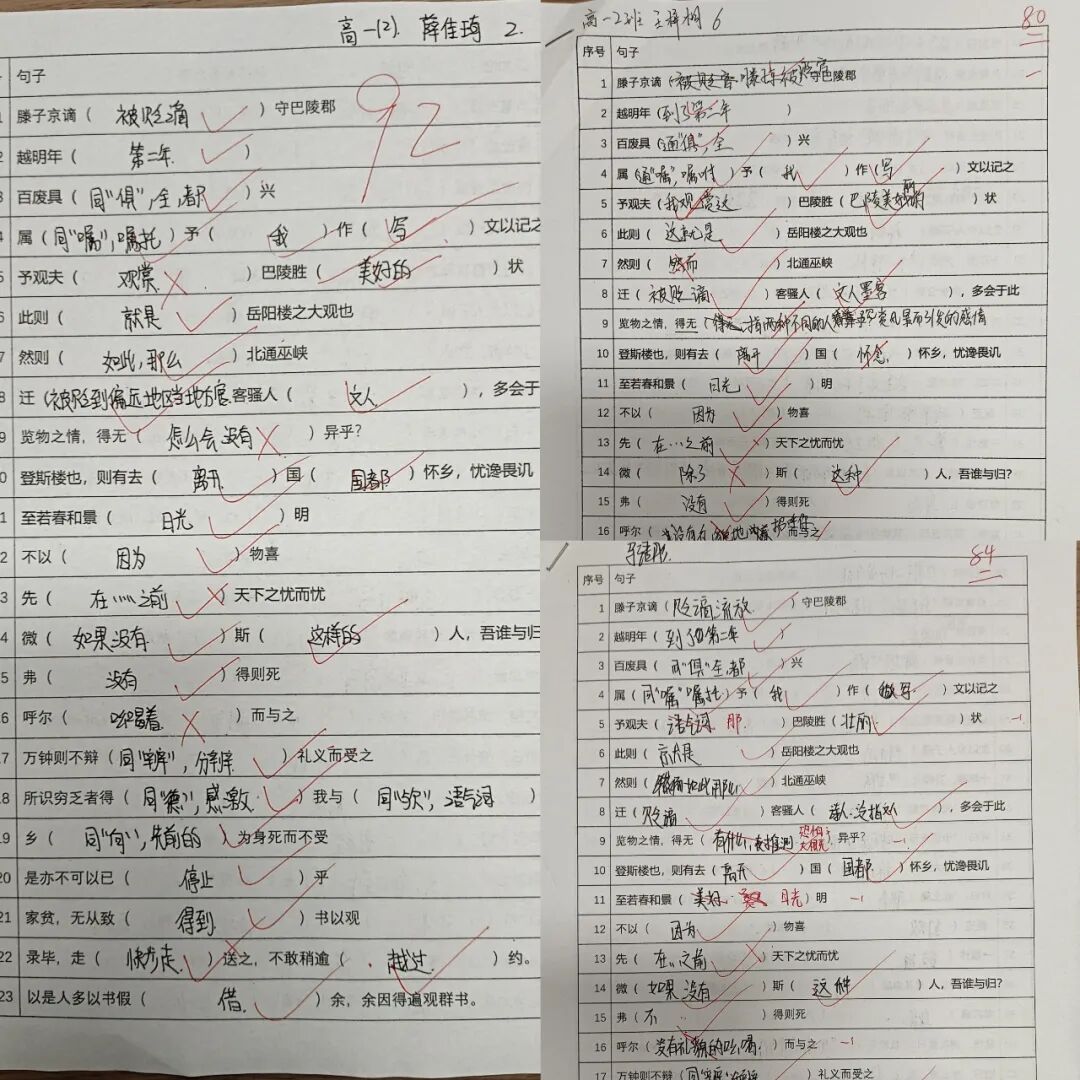 高一(2). 薛佳琦 2.
92
句子
滕子京谪（被贬谪）守巴陵郡
越明年（第二年.）
3 百废具（同“俱”,全,都）兴
属（同“嘱”,嘱托）予（我）作（写.）文以记之
予观夫（观赏）巴陵胜（美好的）状
此则（就是）岳阳楼之大观也
然则（如此,那么）北通巫峡
迁（被贬到偏远地区当地方官）客骚人（文人），多会于此
览物之情，得无（怎么会没有）异乎？
登斯楼也，则有去（离开）国（国都）怀乡，忧谗畏讥
至若春和景（日光）明
不以（因为）物喜
先（在……之前）天下之忧而忧
微（如果没有）斯（这样的）人，吾谁与归
弗（没有）得则死
呼尔（吆喝着）而与之
17 万钟则不辩（同“辨”，分辨）礼义而受之
18 所识穷乏者得（同“德”,感激）我与（同“欤”,语气词）
19 乡（同“向”,先前的）为身死而不受
20 是亦不可以已（停止）乎
21 家贫，无从致（得到）书以观
22 录毕，走（快步走）送之，不敢稍逾（越过）约。
23 以是人多以书假（借）余，余因得遍观群书。
高一2班 6
80
序号 句子
1 滕子京谪（）守巴陵郡
2 越明年（到了第二年）
3 百废具（通“俱”,全）兴
4 属（通“嘱”,嘱付）予（我）作（写）文以记之
5 予观夫（我观）巴陵胜（巴陵美好的）状
6 此则（这就是）岳阳楼之大观也
7 然则（然而）北通巫峡
8 迁（被贬谪）客骚人（文人墨客），多会于此
9 览物之情，得无（指两种不同的人
10 登斯楼也，则有去（离开）国（怀念）怀乡，忧谗畏讥
11 至若春和景（日光）明
12 不以（因为）物喜
13 先（在…之前）天下之忧而忧
14 微（除了）斯（这种）人，吾谁与归？
15 弗（没有）得则死
16 呼尔（）而与之
84
序号 句子
1 滕子京谪（贬谪流放）守巴陵郡
2 越明年（到了第二年）
3 百废具（同“俱”全,都）兴
4 属（同“嘱”嘱托）予（我）作（做写）文以记之
5 予观夫（语气词 那.）巴陵胜（壮丽）状 -1
6 此则（就是）岳阳楼之大观也
7 然则（如此那么）北通巫峡
8 迁（贬谪）客骚人（），多会于此
9 览物之情，得无（）异乎？ -1
10 登斯楼也，则有去（离开）国（国都）怀乡，忧谗畏讥
11 至若春和景（美好 日光）明 -1
12 不以（因为）物喜
13 先（在..之前）天下之忧而忧
14 微（如果没有）斯（这种）人，吾谁与归？
15 弗（不）得则死
16 呼尔（没有礼貌的吆喝）而与之 -1
17 万钟则不辩（同“辨”）礼义而受之